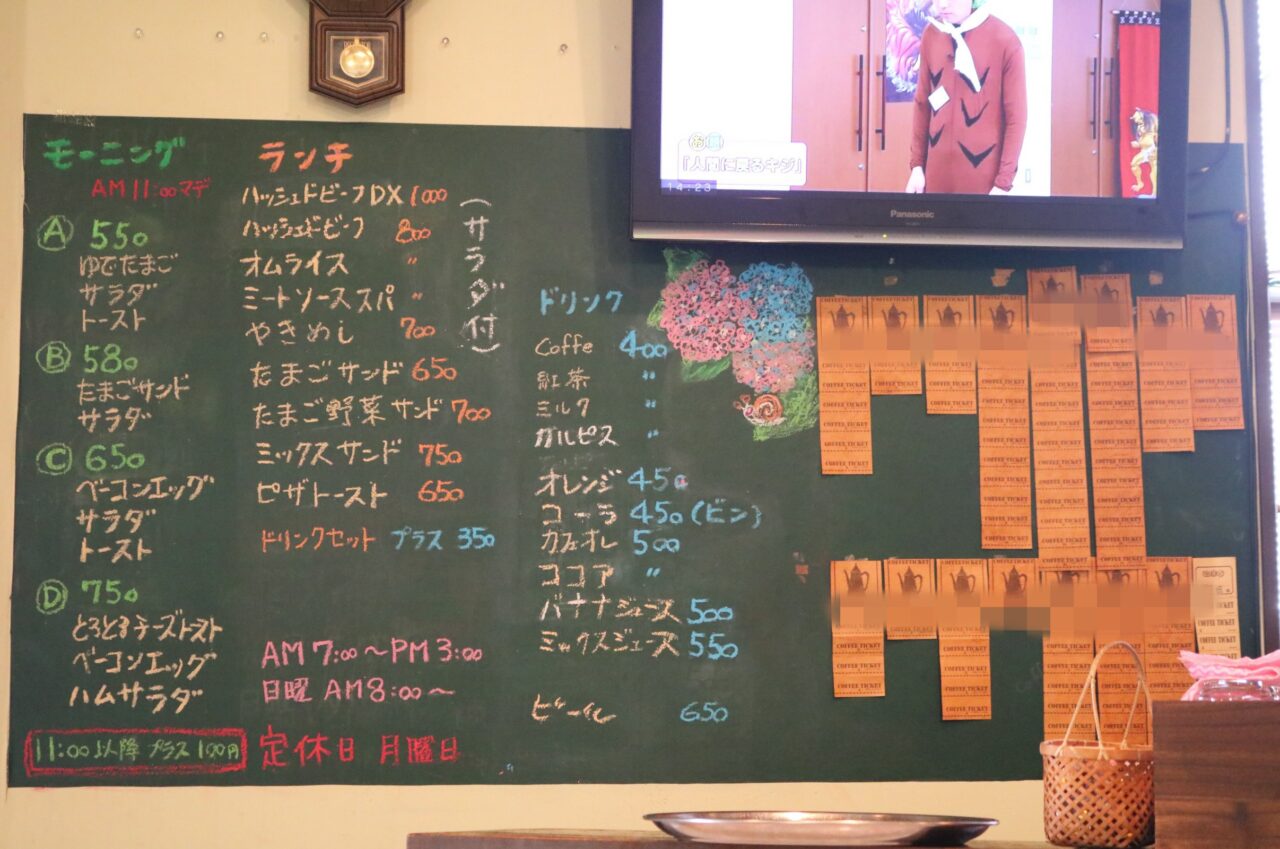 モーニング
AM 11:00マデ
Ⓐ 550
ゆでたまご
サラダ
トースト
Ⓑ 580
たまごサンド
サラダ
Ⓒ 650
ベーコンエッグ
サラダ
トースト
Ⓓ 750
とろとろチーズトースト
ベーコンエッグ
ハムサラダ
11:00以降 プラス 100円
ランチ
ハッシュドビーフDX 1000
ハッシュドビーフ 800
オムライス 〃
ミートソーススパ 〃
やきめし 700
(サラダ付)
たまごサンド 650
たまご野菜サンド 700
ミックスサンド 750
ピザトースト 650
ドリンクセット プラス 350
AM 7:00〜PM 3:00
日曜 AM 8:00〜
定休日 月曜日
ドリンク
Coffe 400
紅茶 〃
ミルク 〃
カルピス 〃
オレンジ 450
コーラ 450(ビン)
カフェオレ 500
ココア 〃
バナナジュース 500
ミックスジュース 550
ビール 650
「人間に戻るキジ」
14:23
Panasonic
COFFEE TICKET